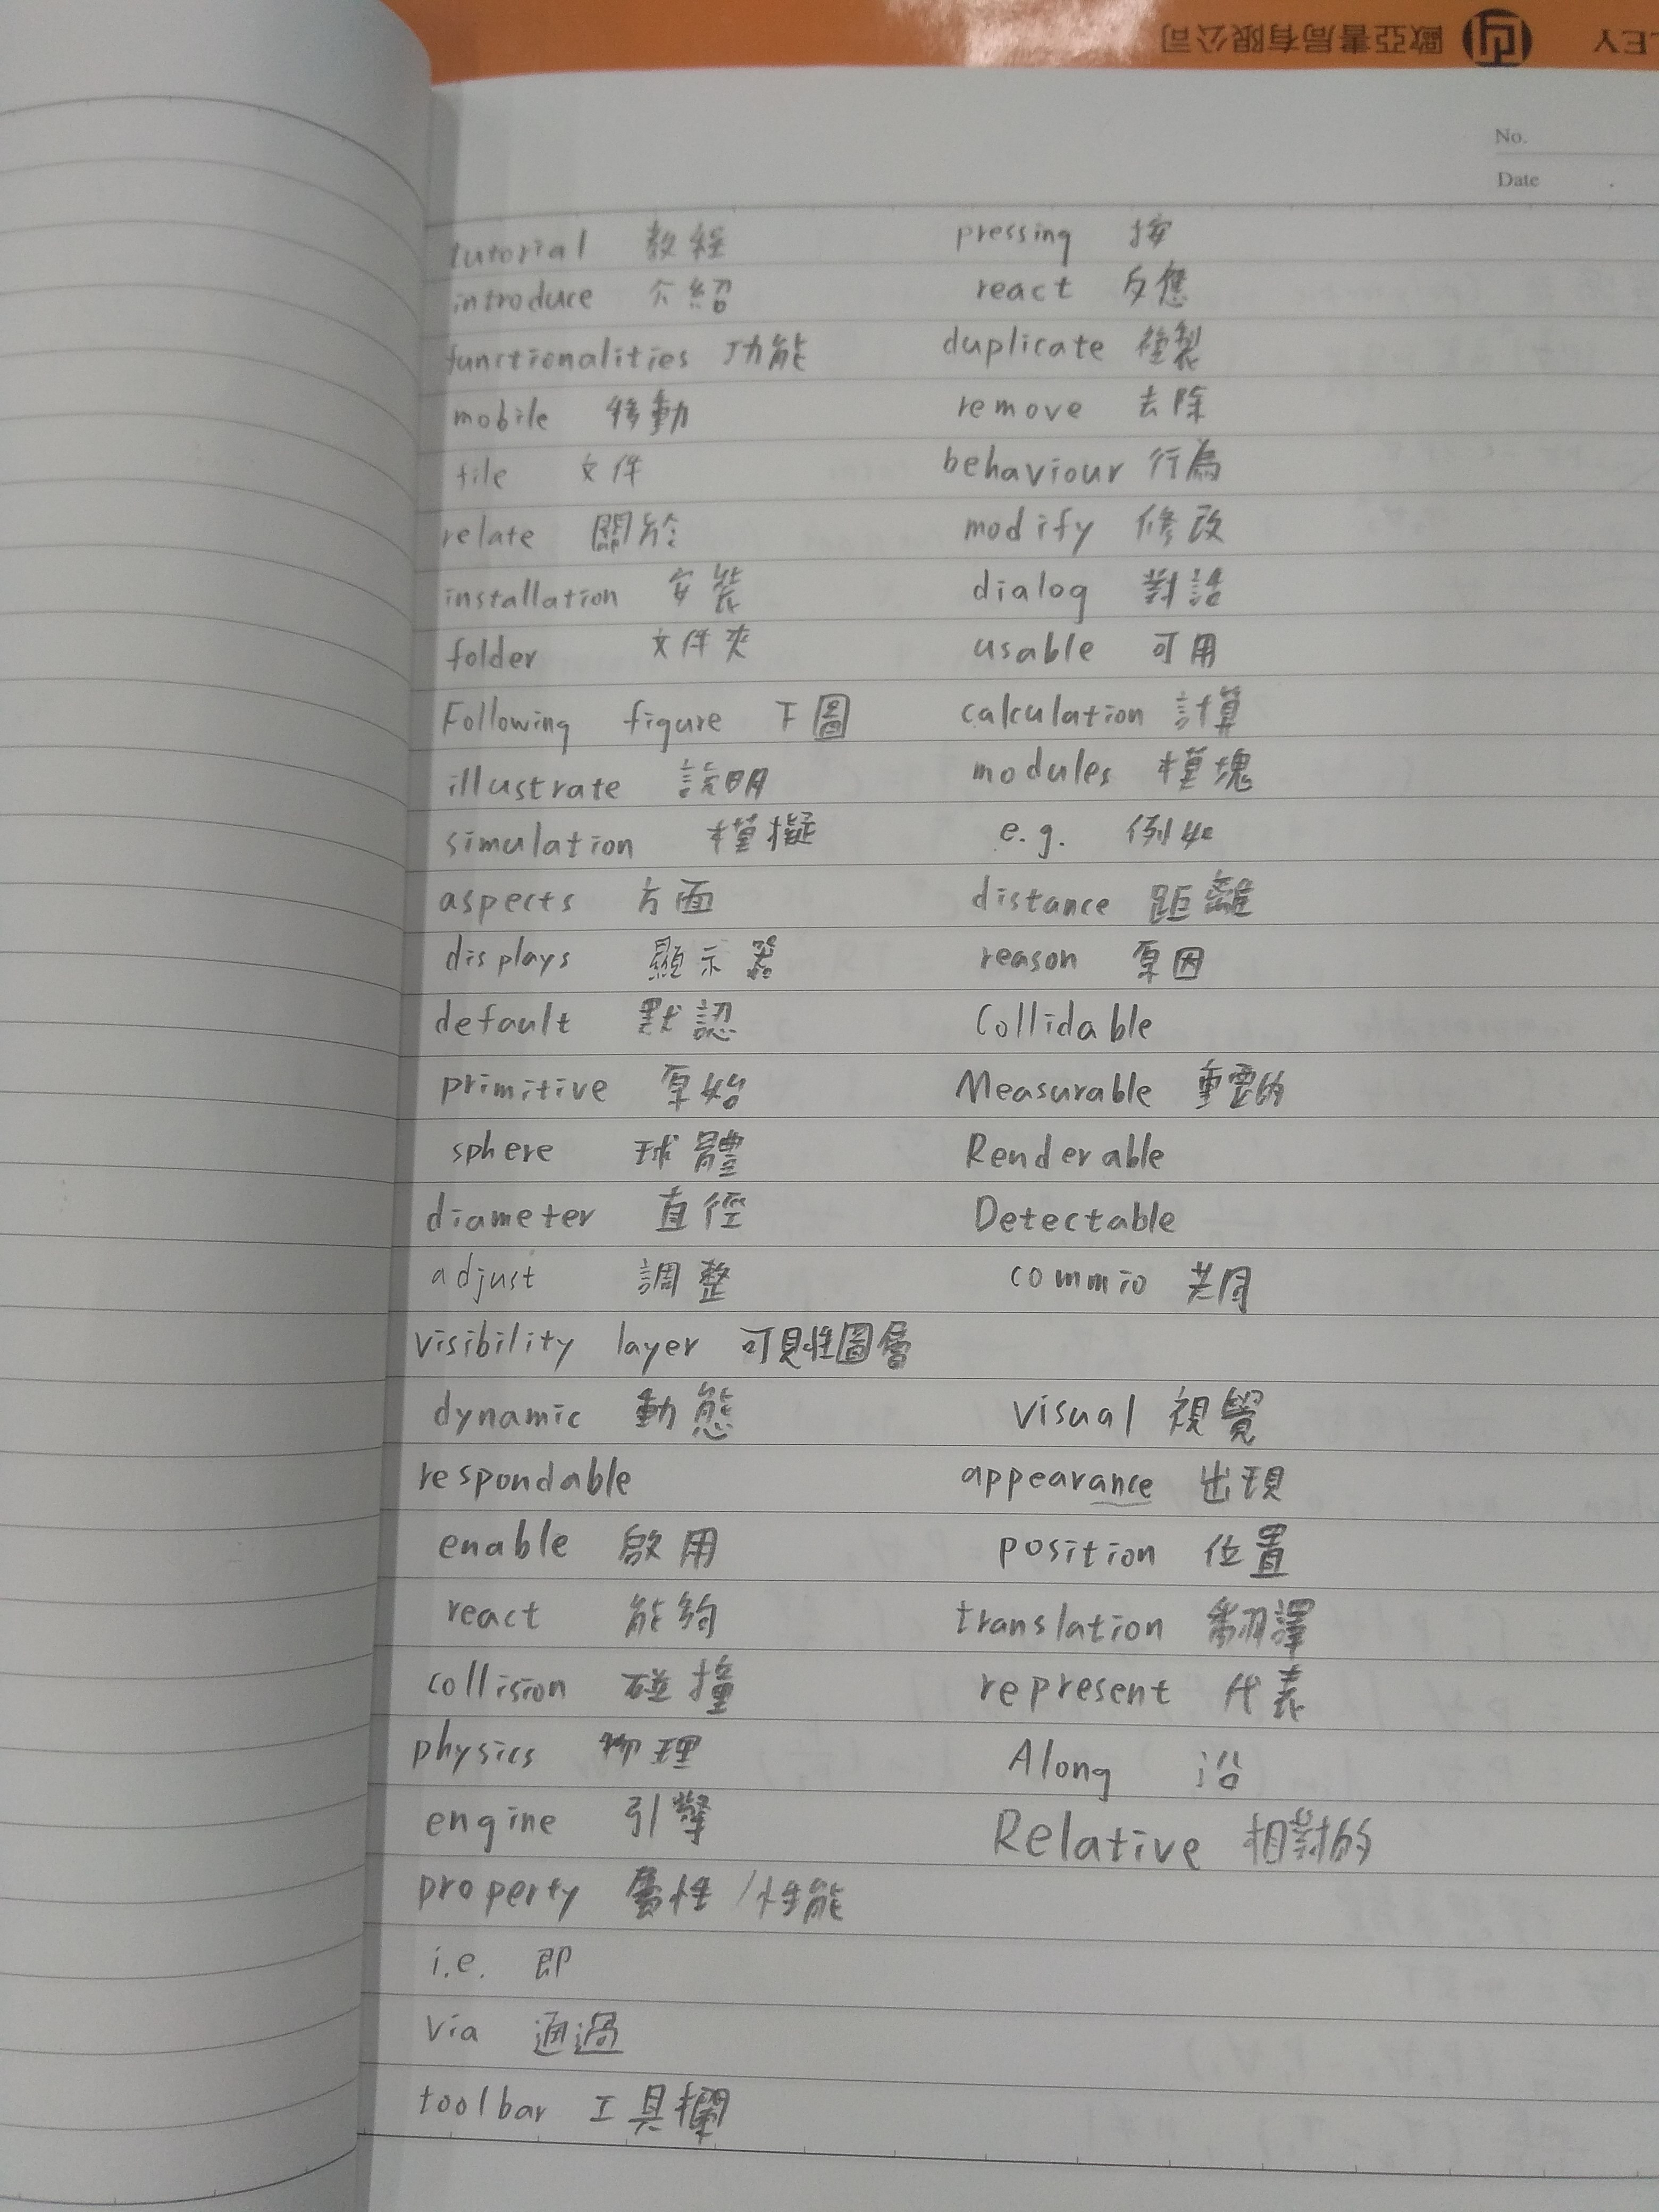 LEY
歐亞書局有限公司
No.
Date
tutorial 教程
introduce 介紹
functionalities 功能
mobile 移動
file 文件
relate 關於
installation 安裝
folder 文件夾
Following figure 下圖
illustrate 說明
simulation 模擬
aspects 方面
displays 顯示器
default 默認
primitive 原始
sphere 球體
diameter 直徑
adjust 調整
visibility layer 可見性圖層
dynamic 動態
respondable
enable 啟用
react 能夠
collision 碰撞
physics 物理
engine 引擎
property 屬性/性能
i.e. 即
via 通過
toolbar 工具欄
pressing 按
react 反應
duplicate 複製
remove 去除
behaviour 行為
modify 修改
dialog 對話
usable 可用
calculation 計算
modules 模塊
e.g. 例如
distance 距離
reason 原因
Collidable
Measurable 重要的
Renderable
Detectable
commio 共同
visual 視覺
appearance 出現
position 位置
translation 翻譯
represent 代表
Along 沿
Relative 相對的